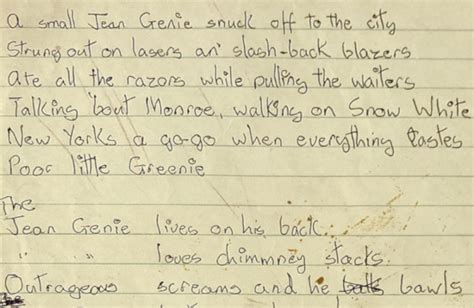 a small Jean Genie snuck off to the city
Strung out on lasers an' slash-back blazers
ate all the razors while pulling the waiters
Talking 'bout Monroe, walking on Snow White
New Yorks a go-go when everything tastes
Poor little Greenie
The
Jean Genie lives on his back.
" " loves chimmney stacks.
Outrageous screams and he balls bawls